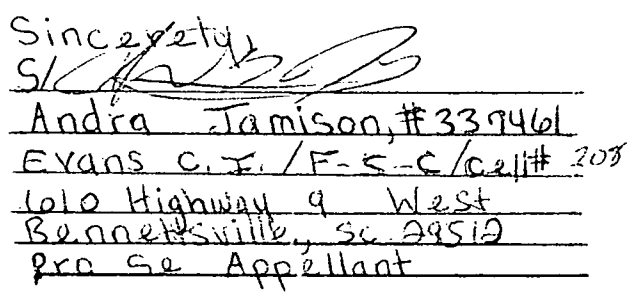 Sincerely,
S/
Andra Jamison, #337461
Evans C.I. / F-5-C / Cell# 208
610 Highway 9 West
Bennettsville, SC 29512
Pro Se Appellant